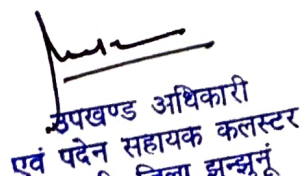 उपखण्ड अधिकारी
एवं पदेन सहायक कलस्टर
जिला झुन्झुनूं